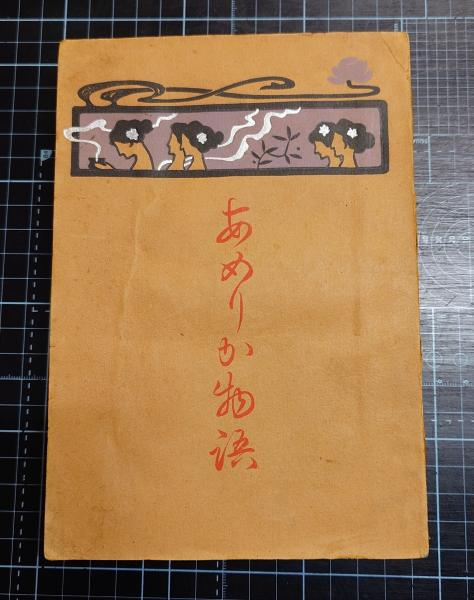 あめりか物語